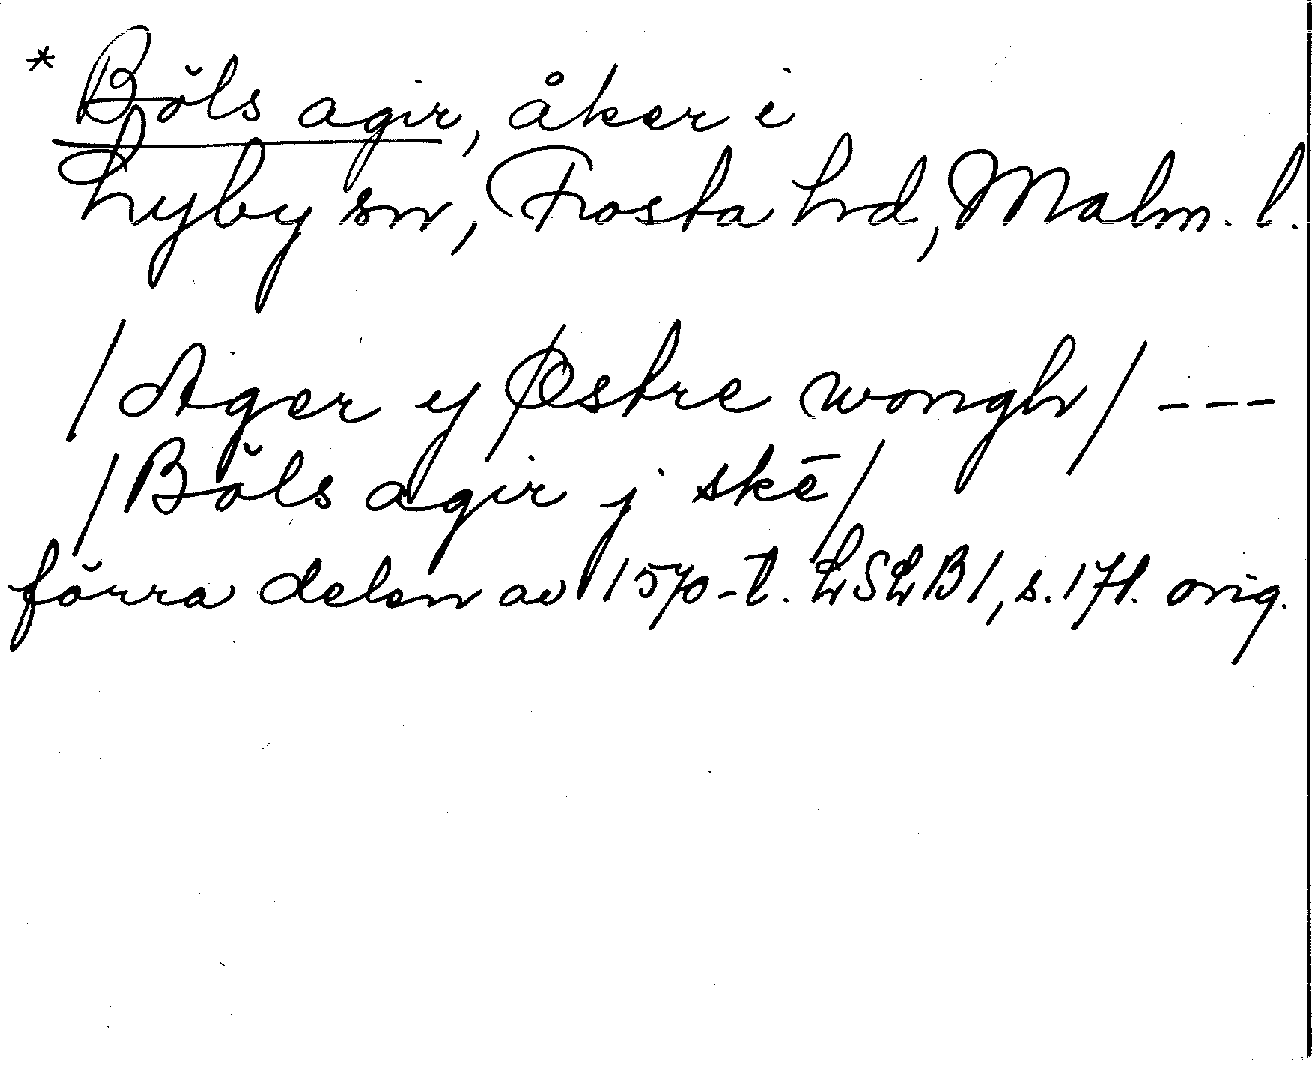 * Böls agir, åker i
Lyby sn, Frosta hd, Malm. l.
/Ager y Østre wongh/ ---
/Böls agir j skē/
förra delen av 1570-t. LSLB1, s. 171. orig.